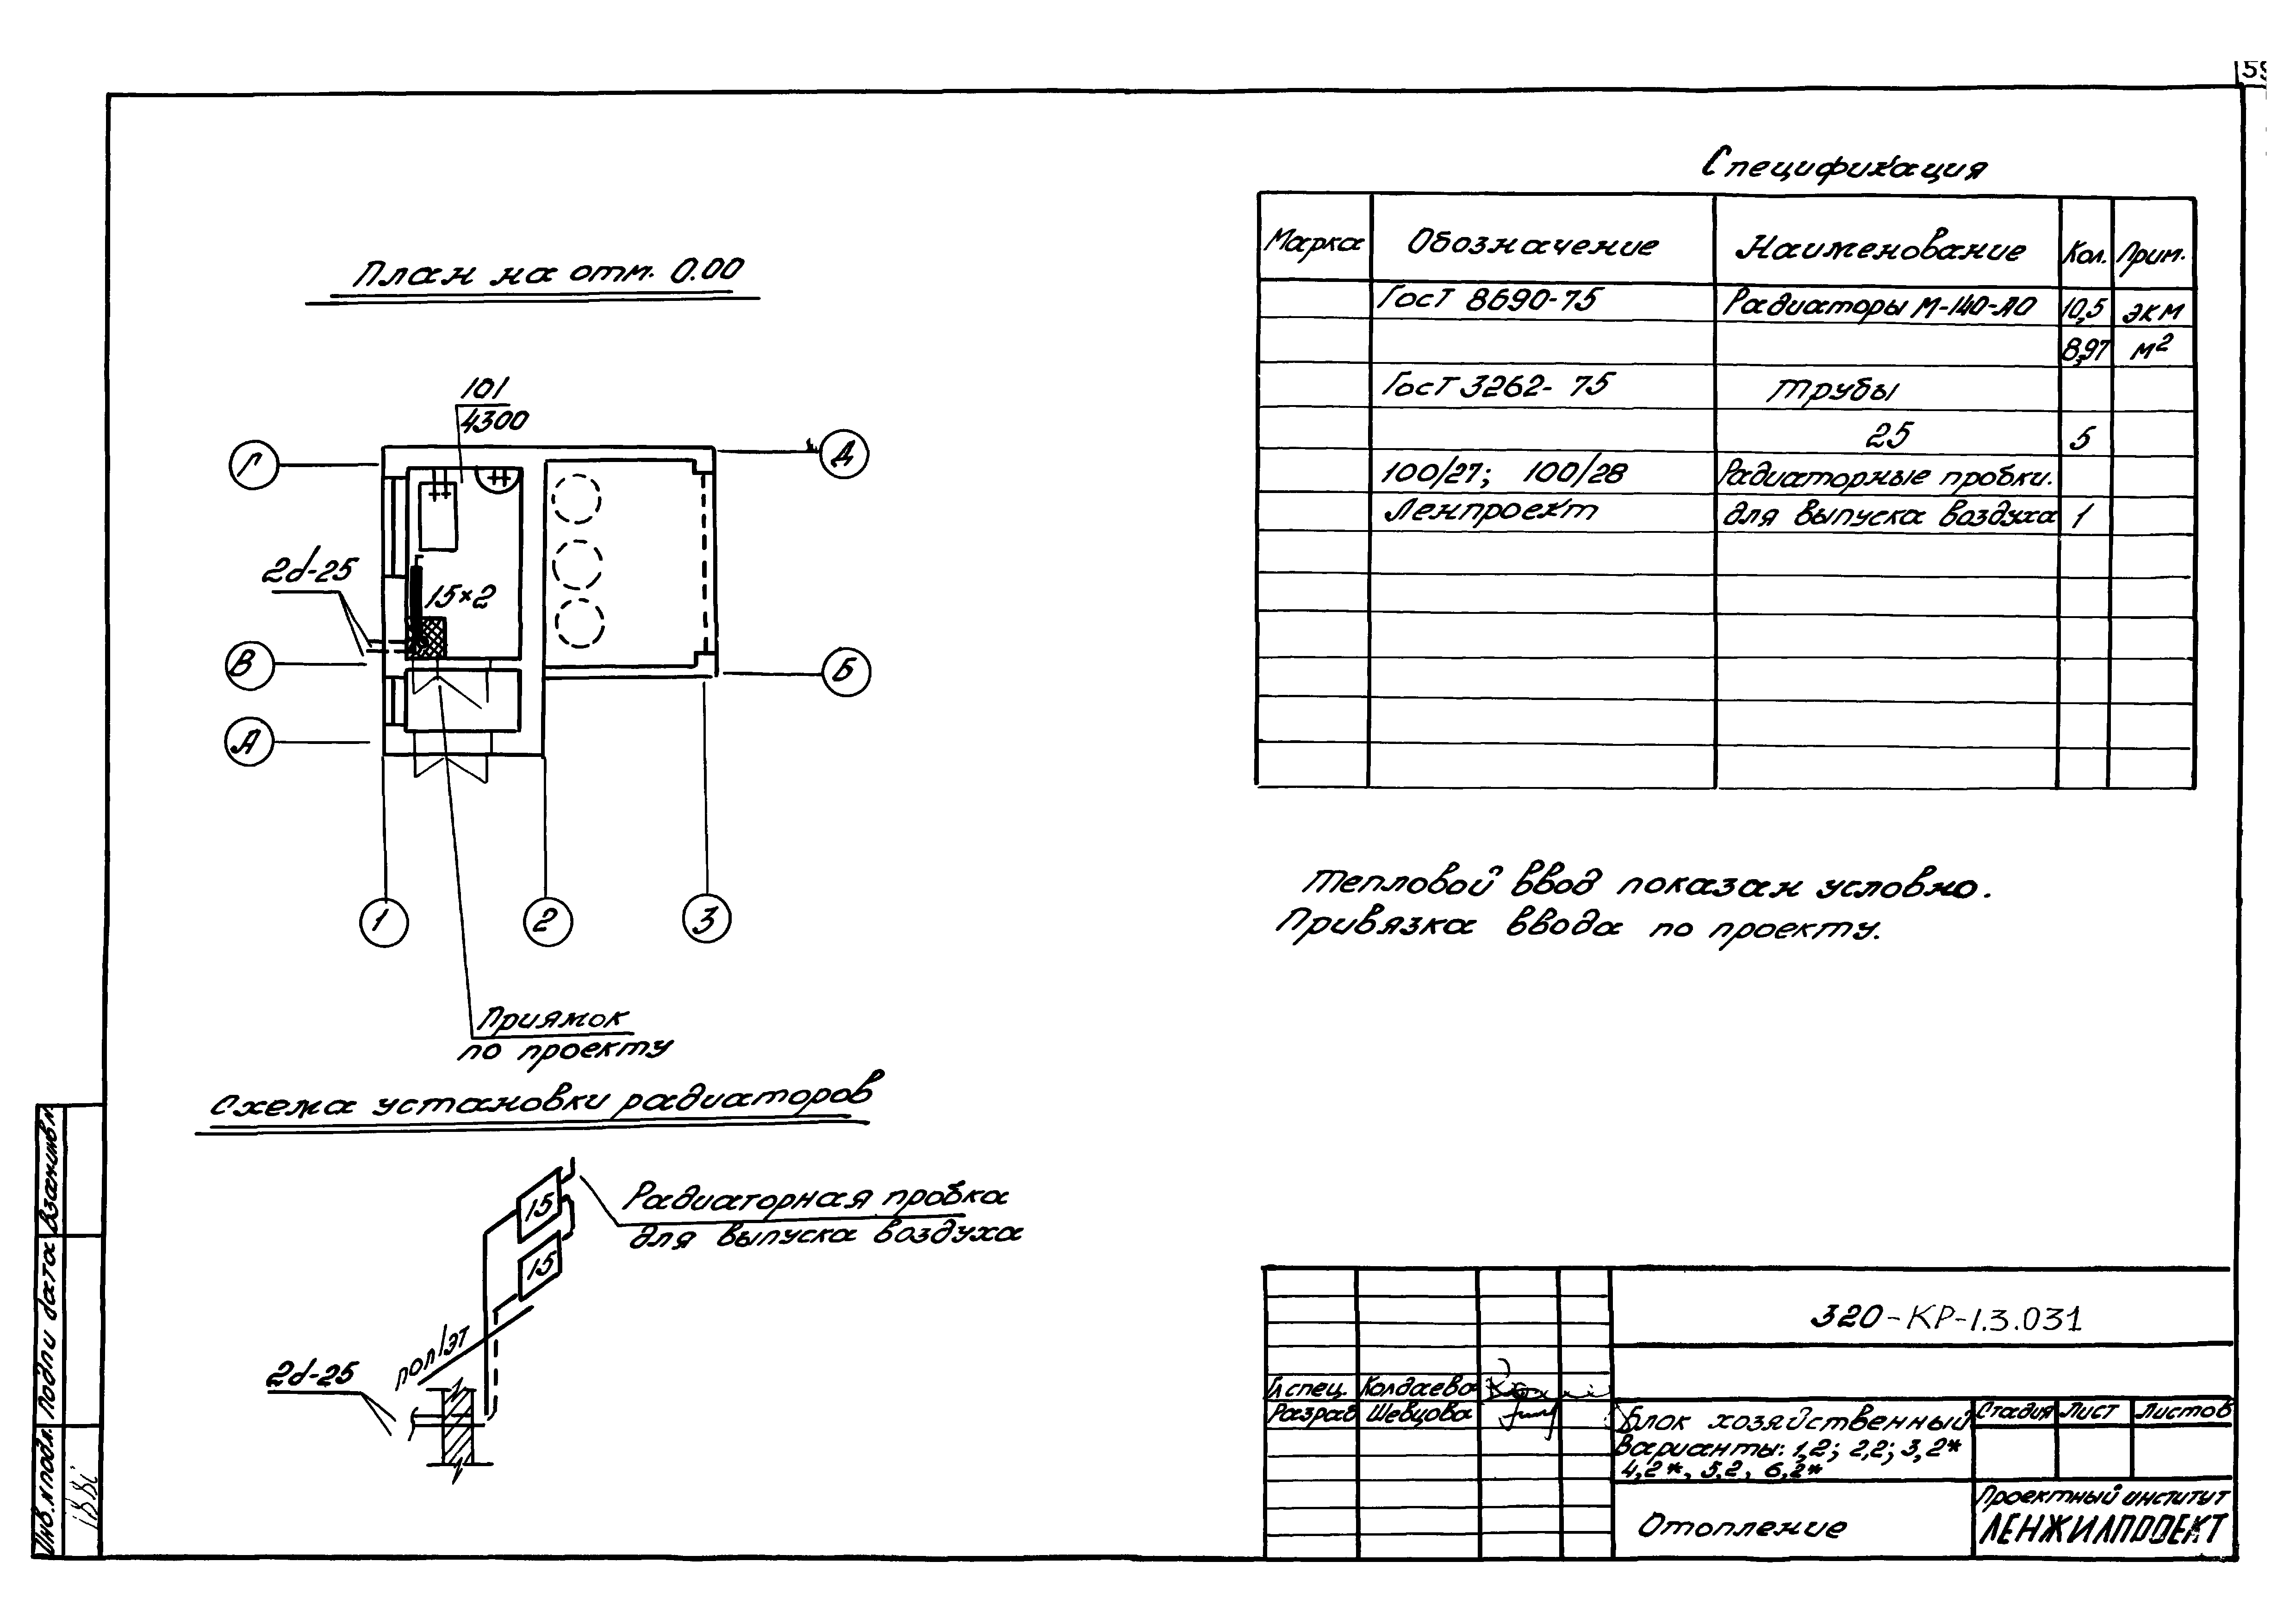 59
План на отм. 0.00
101
4300
Г
Д
2d-25
15×2
В
Б
А
1
2
3
Приямок
по проекту
Схема установки радиаторов
15
15
Радиаторная пробка
для выпуска воздуха
пол 1эт
2d-25
Спецификация
Марка Обозначение Наименование Кол. Прим.
ГОСТ 8690-75 Радиаторы М-140-АО 10,5 экм
8,97 м²
ГОСТ 3262-75 Трубы
25 5
100/27; 100/28 Радиаторные пробки.
Ленпроект для выпуска воздуха 1
Тепловой ввод показан условно.
Привязка ввода по проекту.
320-КР-1.3.031
Гл спец. Колдаева
Разраб Шевцова
Блок хозяйственный
Варианты: 1,2; 2,2; 3,2*
4,2*, 5,2, 6,2*
Стадия Лист Листов
Отопление
Проектный институт
ЛЕНЖИЛПРОЕКТ
Взам инв N
Подп и дата
Инв. N подл.